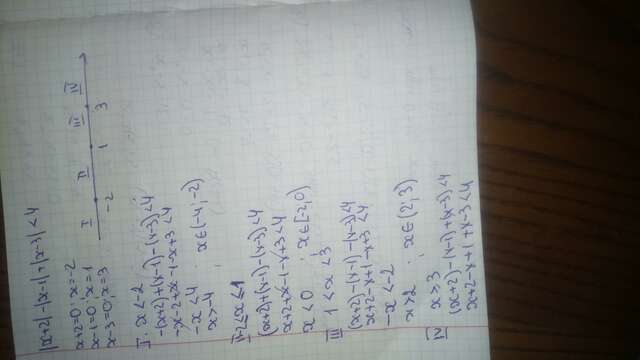 |x+2|-|x-1|+|x-3|<4
x+2=0; x=-2
x-1=0; x=1
x-3=0; x=3
I II III IV
-2 1 3
I. x<-2
-(x+2)+(x-1)-(x-3)<4
-x-2+x-1-x+3<4
-x<4
x>-4 ; x∈(-4;-2)
II -2≤x≤1
(x+2)+(x-1)-(x-3)<4
x+2+x-1-x+3<4
x<0 ; x∈[-2;0)
III 1<x≤3
(x+2)-(x-1)-(x-3)<4
x+2-x+1-x+3<4
-x<-2
x>2 ; x∈(2;3)
IV x>3
(x+2)-(x-1)+(x-3)<4
x+2-x+1+x-3<4